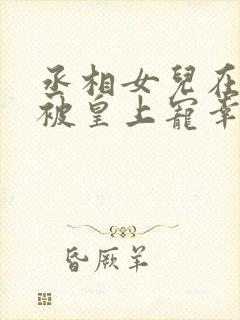 丞相女兒在
被皇上寵幸
昏厥羊